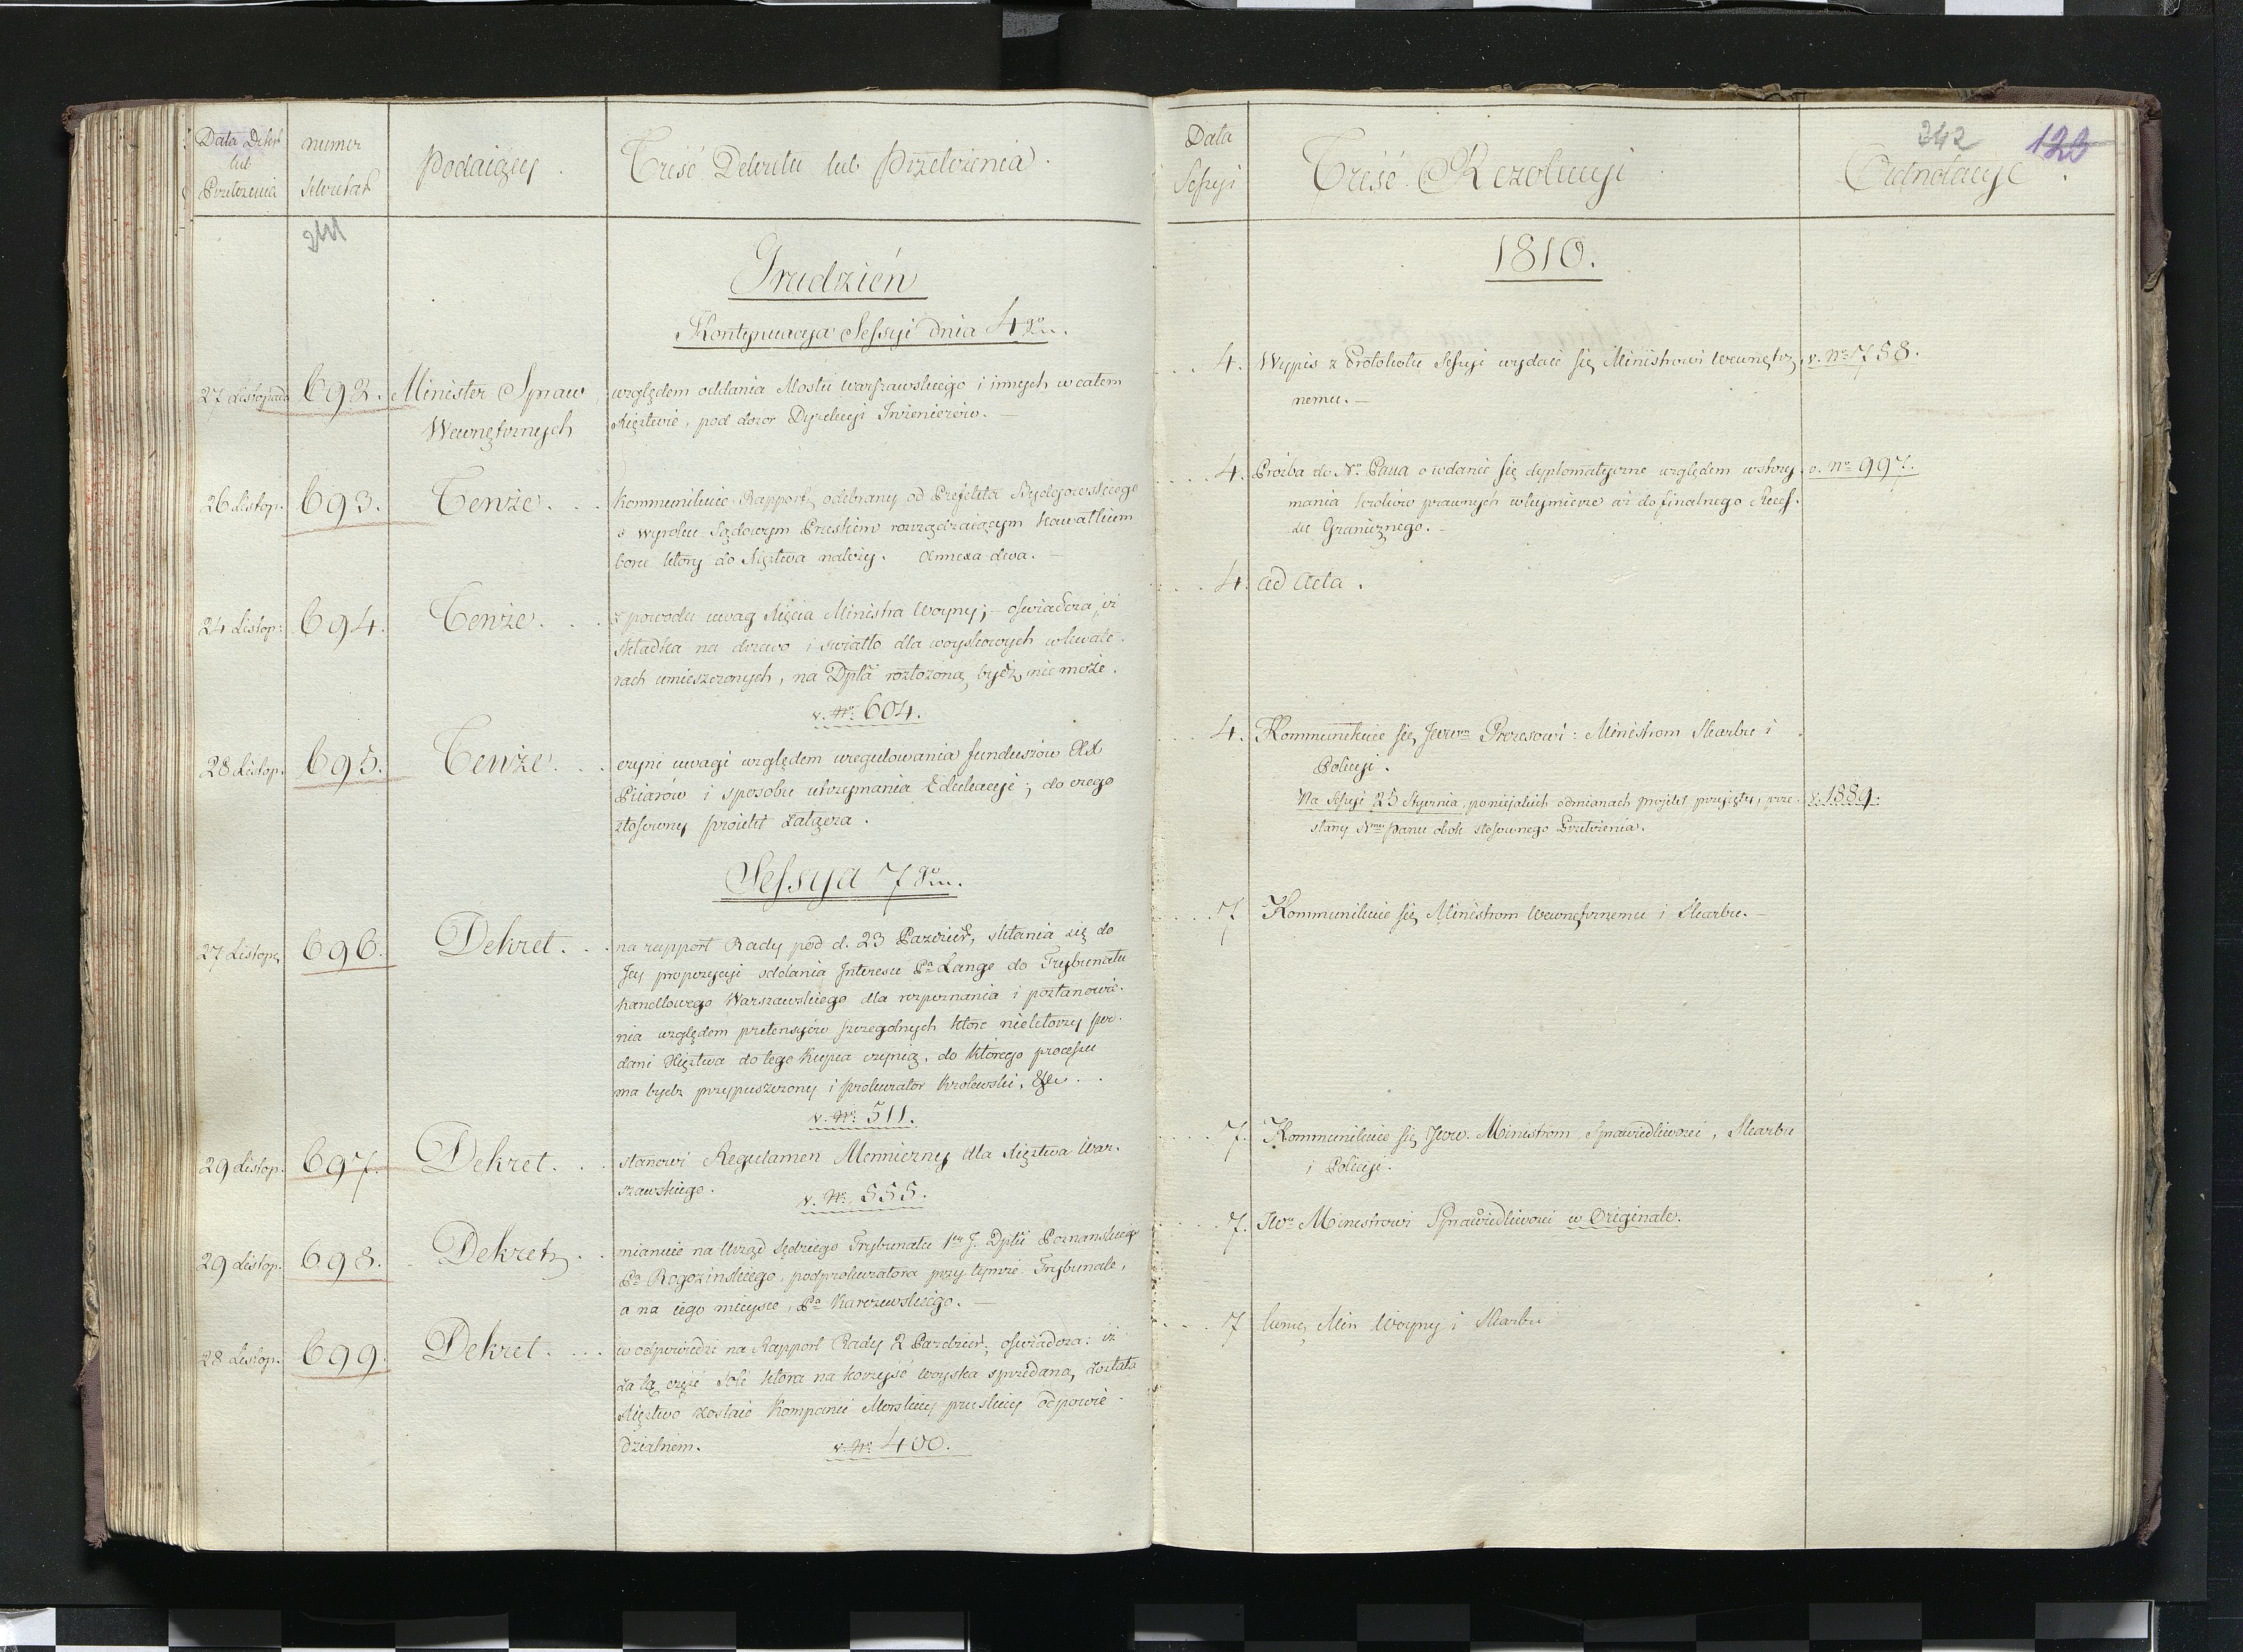 Data Dekrt
lub
Przełożenia
numer
Sekretar
Podaiący.
Treść Dekretu lub Przełożenia.
241
Grudzień
Kontynuacya Sessyi dnia 4go m.
27 Listopada
692.
Minister Spraw
Wewnętrznych
względem oddania Mostu warszawskiego i innych w całem
Xięztwie, pod dozor Dyrekcyi Inżenierów. —
26 Listop.
693.
Tenże. . .
kommunikuie Rapport odebrany od Prefekta Bydgowskiego
o wyroku Sądowym Pruskiem rozrządzaiącym kawałkiem
boru ktory do Xięztwa należy. Annexa dwa. —
24 Listop:
694.
Tenże. . .
z powodu uwag Xięcia Ministra Woyny; — oświadcza, iż
składka na drzewo i światło dla woyskowych w kwate-
rach umieszczonych, na Dptā rozłożoną bydź nie może.
v. No: 604.
28 Listop.
695.
Tenże. . .
czyni uwagi względem uregulowania funduszów XX
Piiarów i sposobu utrzymania Edukacyi; do czego
stosowny proiekt załącza.
Sessya 7go m.
27 Listop.
696.
Dekret. . .
na rapport Rady pod d. 23 Paździer, skłania się do
Jey propozycyi oddania Interesu Pa Lange do Trybunału
handlowego Warszawskiego dla rozpoznania i postanowie-
nia względem pretensyów szczegolnych ktore niektorzy pod-
dani Xięztwa do tego Kupca czynią, do ktorego processu
ma bydz przypuszczony i prokurator Krolewski, &c. .
v. No: 511.
29 Listop.
697.
Dekret. . .
stanowi Regulamen Menniczny dla Xięztwa War-
szawskiego.
v. No. 555.
29 Listop.
698.
Dekret. . .
mianuie na Urząd Sędziego Trybunału 1ey J. Dptū Poznanskiego
Pa Rogozinskiego, podprokuratora przy tymże Trybunale,
a na iego mieysce, Pa Karczewskiego. —
28 Listop.
699.
Dekret. . .
w odpowiedzi na Rapport Rady 2 Paździer, oświadcza: iż
za tą część Soli ktora na korzyść woyska sprzedaną została
Xięztwo zostaie Kompanii Morskiey pruskiey odpowie-
dzialnem.
v. No: 400.
Data
Sessyi
Treść Rezolucyi
Adnotacye.
242
120
1810.
4.
Wypis z Protokołu Sessyi wydaie się Ministrowi Wewnętrz-
nemu. —
v. No 758.
4.
Prozba do N. Pana o wdanie się dyplomatyczne względem wstrzy-
mania krokow prawnych w teymierze aż do finalnego
Granicznego. —
v. No 997.
4.
ad Acta.
4.
Kommunikuie się Prezesowi: Ministrom Skarbu i
Policyi.
Na Sessyi 25 Stycznia, po nieiakich odmianach projekt przyięty, prze-
słany Nmu Panu obok stosownego Przełożenia.
v. 1889.
7.
Kommunikuie się Ministrom Wewnętrznemu i Skarbu. —
7.
Kommunikuie się Ministrom Sprawiedliwości, Skarbu
i Policyi.
7.
Ministrowi Sprawiedliwości w Originale.
7
Min Woyny i Skarbu